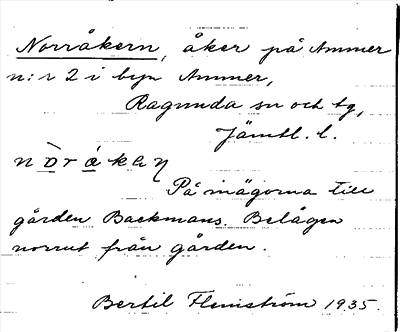 Norråkern, åker på Ammer
n:r 2 i byn Ammer,
Ragunda sn och tg,
Jämtl. l.
På inägorna till
gården Backmans. Belägen
norrut från gården.
Bertil Flemström 1935.